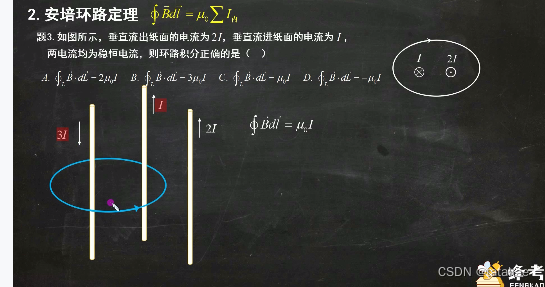 2. 安培环路定理 ∮B⃗dl⃗ = μ₀∑I内
题3. 如图所示，垂直流出纸面的电流为2I，垂直流进纸面的电流为I，
两电流均为稳恒电流，则环路积分正确的是（ ）
A. ∮_L B⃗·dL⃗=2μ₀I B. ∮_L B⃗·dL⃗=3μ₀I C. ∮_L B⃗·dL⃗=μ₀I D. ∮_L B⃗·dL⃗=−μ₀I
I 2I
3I
I
2I
∮B⃗dl⃗ = μ₀I
蜂考
FENGKAO